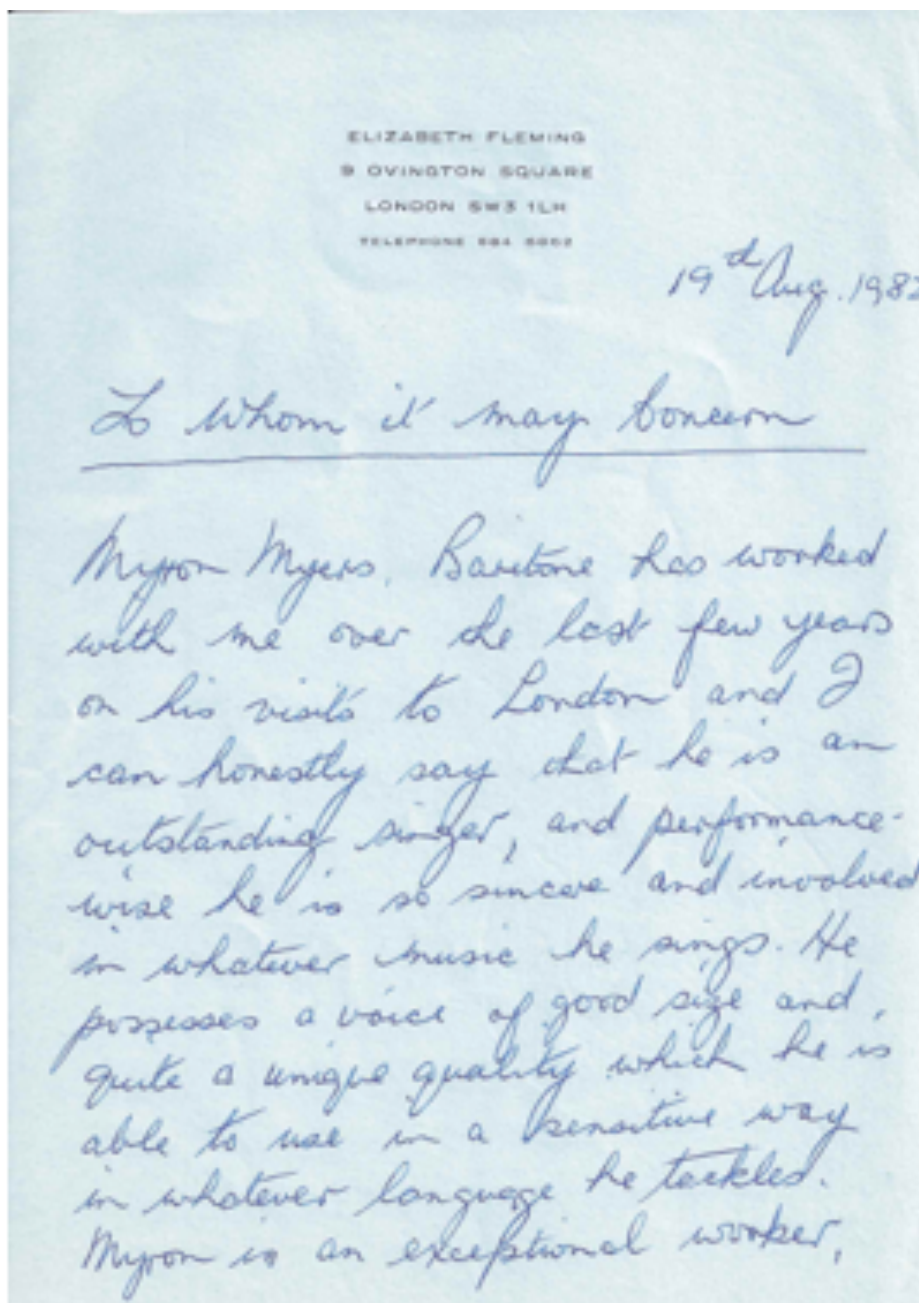 ELIZABETH FLEMING
9 OVINGTON SQUARE
LONDON SW3 1LH
TELEPHONE
19d Aug. 198
To Whom it may Concern
Myron Myers. Baritone has worked
with me over the last few years
on his visits to London and I
can honestly say that he is an
outstanding singer, and performance-
wise he is so sincere and involved
in whatever music he sings. He
possesses a voice of good size and,
quite a unique quality which he is
able to use in a sensitive way
in whatever language he tackles.
Myron is an exceptional worker,